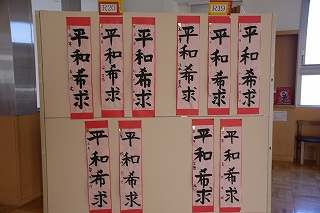 R20
R19
平和希求
平和希求
平和希求
平和希求
平和希求
平和希求
平和希求
平和希求
平和希求
平和希求